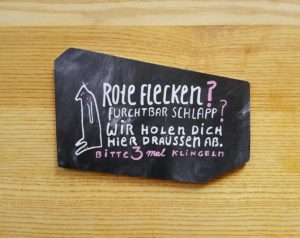 ROTE FLECKEN?
FURCHTBAR SCHLAPP?
WIR HOLEN DICH
HIER DRAUSSEN AB.
BITTE 3 mal KLINGELN